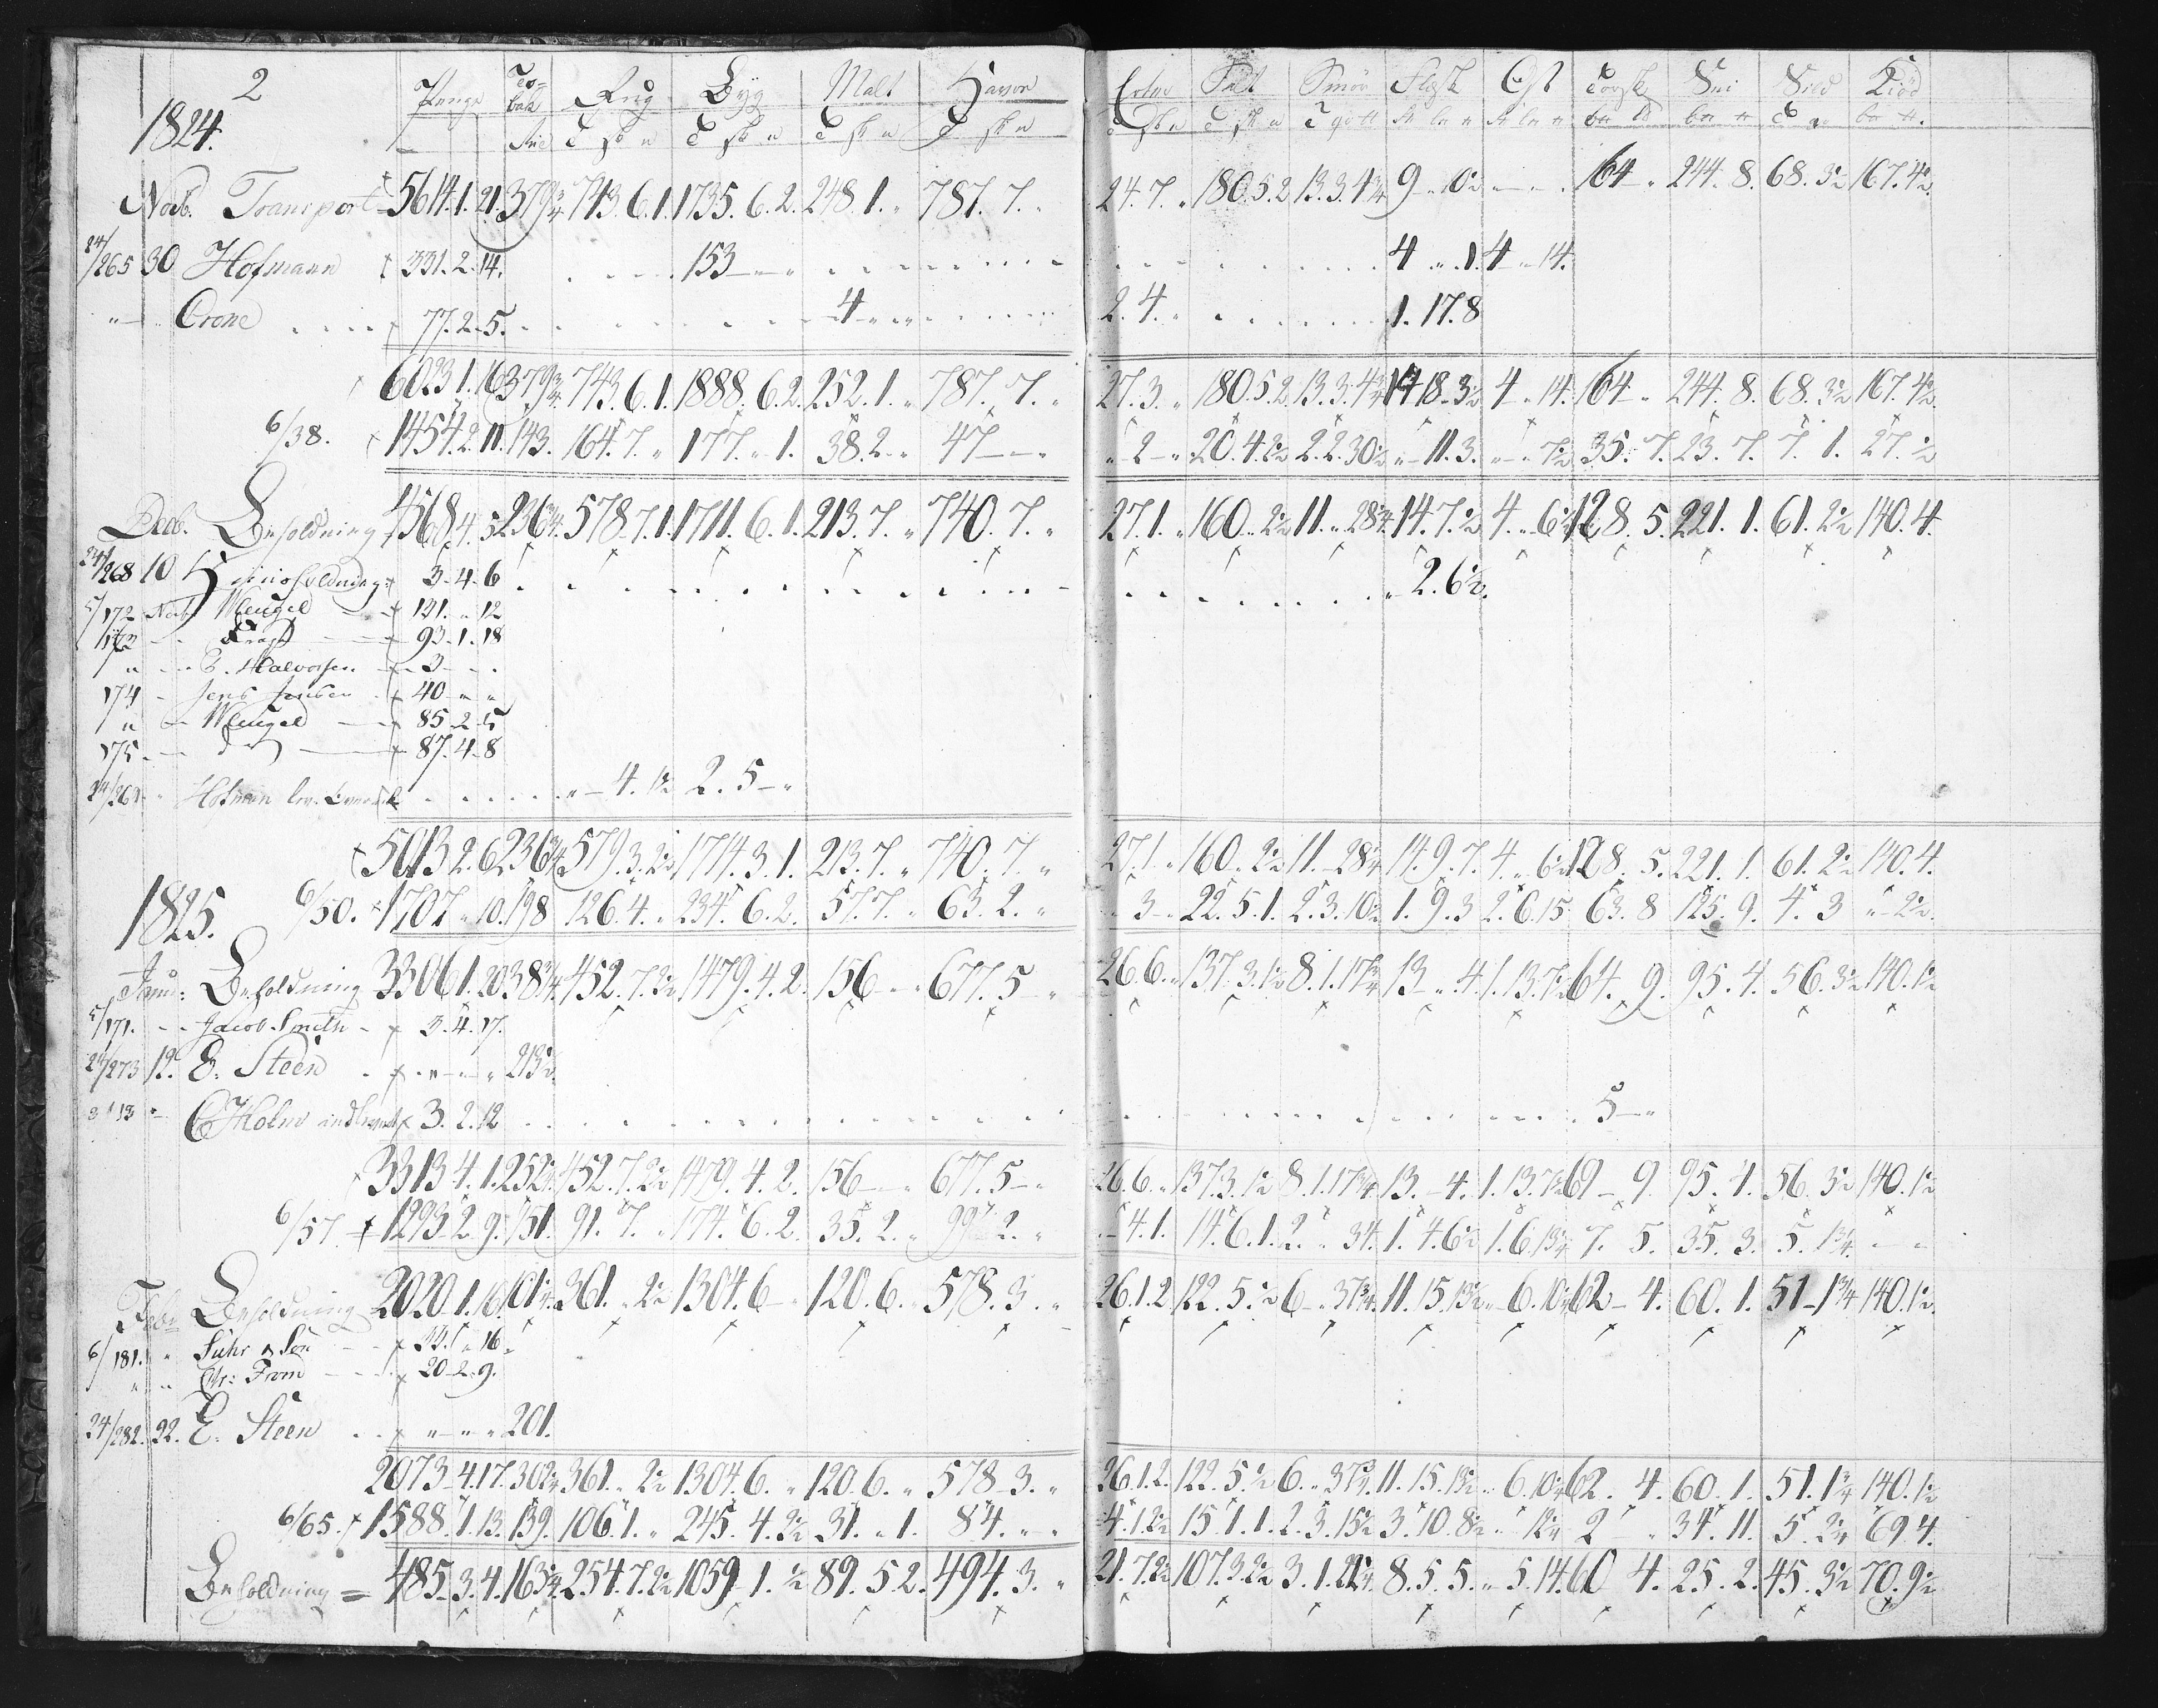 2
1824.
Penge Tobak Rug Byg Malt Havre Erter Salt Smör Flesk Ost Torsk Sei Sild Kiöd
Novb. Transport 5614.1.21. 379 3/4 743.6.1. 1735.6.2. 248.1.„ 787.7.„ 24.7.„ 180.5.2 13.3.4 3/4 9 „ 10 1/2 164 „ 244.8. 68.3 1/2 167.4 1/2.
24/265 30 Hofmann 331.2.14. 153 4 „ 1. 4 „ 14.
„ Crone 77.2.5. 4 2.4.„ 1.17.8
6023.1.16 379 3/4 743.6.1. 1888.6.2. 252.1.„ 787.7.„ 27.3.„ 180.5.2. 13.3.4 3/4 14.18.3 1/2 4 „ 14. 164 „ 244.8. 68.3 1/2 167.4 1/2.
6/38. 1454.2.11. 143. 164.7.„ 177.„1. 38.2.„ 47 „ 2 „ 20.4.2 1/2 2.2.30 1/2 „ 11.3. „ 7 1/2 35.7. 23.7. 7.1. 27. 1/2
Decb. Beholdning 4568.4.5 236 3/4 578.7.1. 1711.6.1. 213.7.„ 740.7.„ 27.1.„ 160.„2 1/2 11.„28 1/4 14.7. 1/2 4.„6 1/2 128.5. 221.1. 61.2 1/2 140.4.
24/268 10 Huusholdning 3.4.6 2.6 1/2.
5/172 Novb. Wleugel 121.„12
173 Kragh 93.1.18
„ E. Halvorsen 3
174 Jens Jensen 40 „ „
„ Wleugel 85.2.5
175 do 87.4.8
24/269 Hofmann lev. Qværnk „ 4. 1 1/2 2.5 „
5013.2.6 236 3/4 579.3.2 1/2 1714.3.1. 213.7.„ 740.7.„ 27.1.„ 160.„2 1/2 11.„28 1/4 14.9.7. 4.„6 1/2 128.5. 221.1. 61.2 1/2 140.4.
1825. 6/50. 1707.„10. 198 126.4.„ 234.6.2. 57.7.„ 63.2.„ „3 „ 22.5.1. 2.3.10 1/2 1.9.3 2.6.15 63.8 125.9. 4.3 „ 2 1/2.
Janu: Beholdning 3306.1.20 38 3/4 452.7.2 1/2 1479.4.2. 156 „ 677.5 „ 26.6.„ 137.3.1 1/2 8.1.17 3/4 13 „ 4. 1.13.7 1/2 64.9. 95.4. 56.3 1/2 140.1 1/2
5/171. Jacob Smith 3.4.17.
24/273 12. E. Steen 213 1/2.
3/13 „ C Holm indleveret 3.2.12 5
3313.4.1. 252 1/4 452.7.2 1/2 1479.4.2. 156 „ 677.5 „ 26.6.„ 137.3.1 1/2 8.1.17 3/4 13.„4. 1.13.7 1/2 69 „ 9. 95.4. 56.3 1/2 140.1 1/2
6/57. 1293.2.9. 151. 91.7.„ 174.6.2. 35.2.„ 99.2.„ „4.1. 14.6.1. 2.„34. 1.4.6 1/2 1.6.13 1/4 7.5. 35.3. 5.1 3/4.
Febr. Beholdning 2020.1.16. 101 1/4 361.„2 1/2 1304.6 „ 120.6.„ 578.3.„ 26.1.2 122.5. 1/2 6 „ 37 3/4. 11.15.13 1/2 „ 6.10 1/4 62 „ 4. 60.1. 51 „ 1 3/4 140.1 1/2.
6/181. „ Suhr & Sön 33.„16.
„ „ Chr: From 20.2.9.
24/282. 22. E. Steen „ „ „ 201.
2073.4.17. 302 1/4 361.„2 1/2 1304.6.„ 120.6.„ 578.3.„ 26.1.2. 122.5. 1/2 6.„37 3/4 11.15.13 1/2 „ 6.10 1/4 62.4. 60.1. 51.1 3/4 140.1 1/2
6/65. 1588.1.13. 139. 106.1.„ 245.4.2 1/2 31.„1. 84.„ 4.1.2 1/2 15.1.1. 2.3.15 1/2 3.10.8 1/2 2 „ 34.11. 5.2 1/4 69.4.
Beholdning = 485.3.4. 163 1/4 254.7.2 1/2 1059.1. 1/2 89.5.2. 494.3.„ 21.7.2 1/2 107.3.2 1/2 3.1.22 1/4 8.5.5. „ 5.14. 60 4. 25.2. 45.3 1/2 70.9 1/2